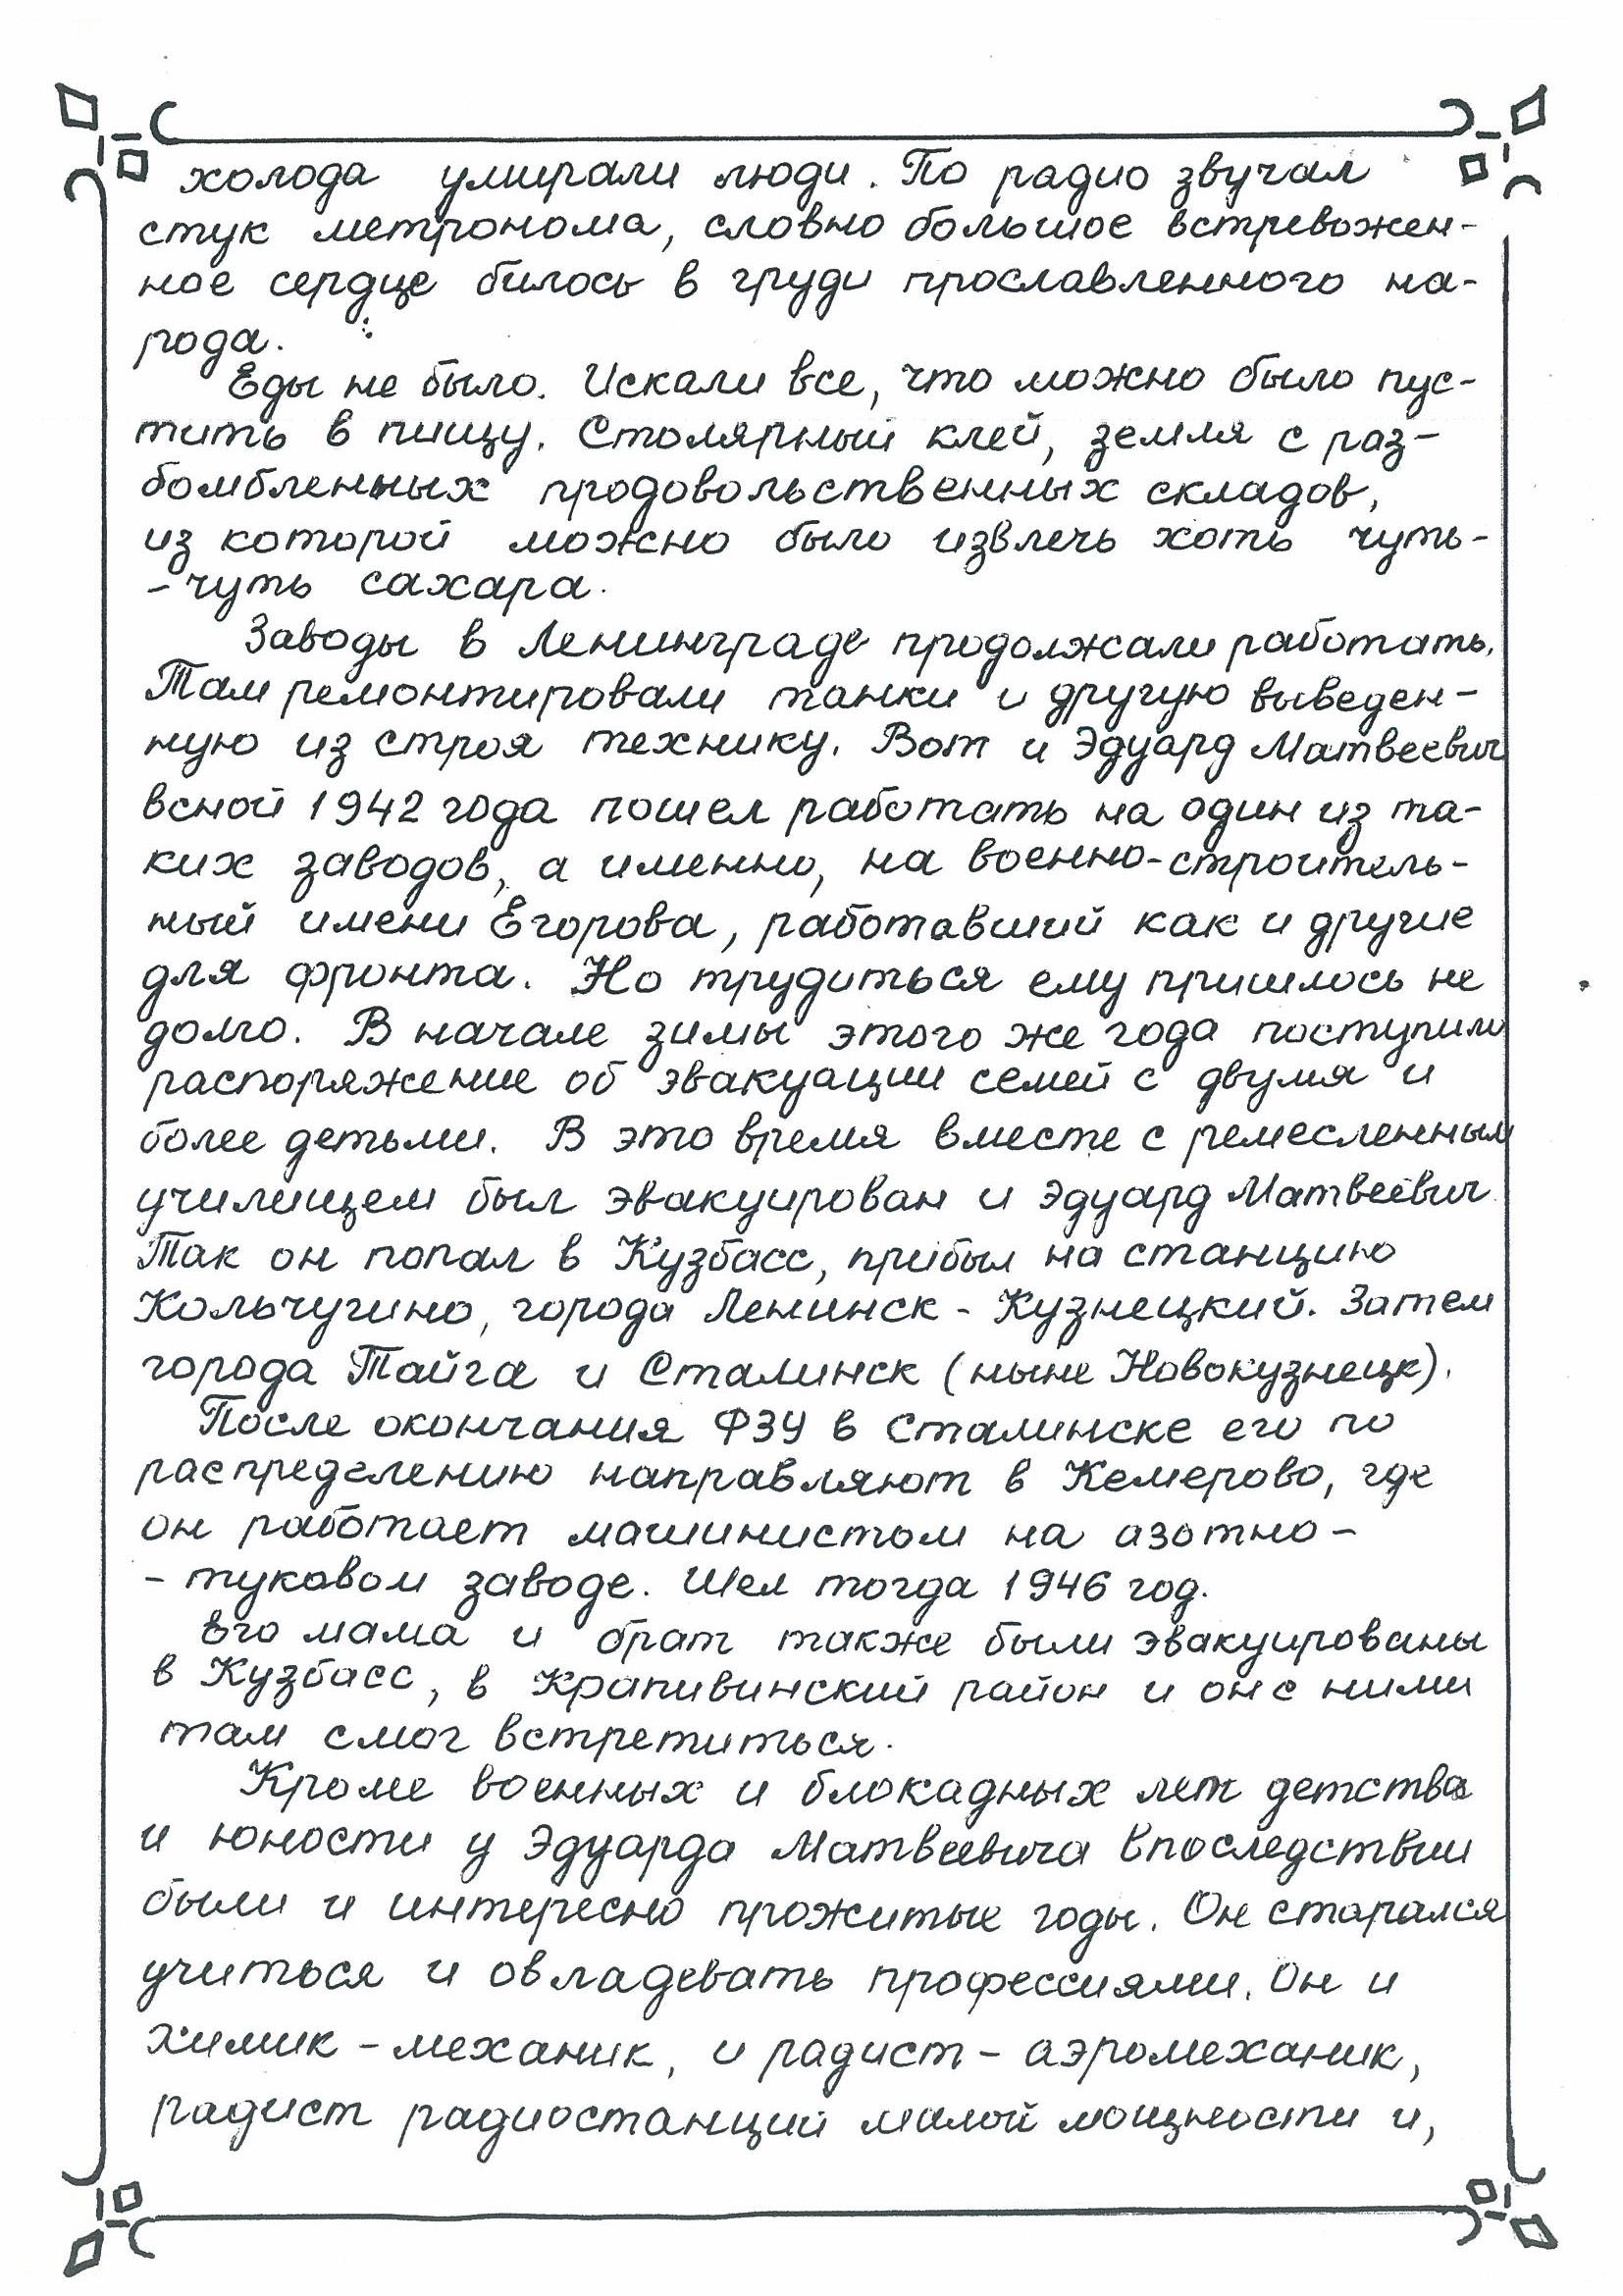 холода умирали люди. По радио звучал
стук метронома, словно большое встревожен-
ное сердце билось в груди прославленного на-
рода.
Еды не было. Искали все, что можно было пус-
тить в пищу. Столярный клей, земля с раз-
бомбленных продовольственных складов,
из которой можно было извлечь хоть чуть-
-чуть сахара.
Заводы в Ленинграде продолжали работать.
Там ремонтировали танки и другую выведен-
ную из строя технику. Вот и Эдуард Матвеевич
всной 1942 года пошел работать на один из та-
ких заводов, а именно, на военно-строитель-
ный имени Егорова, работавший как и другие
для фронта. Но трудиться ему пришлось не
долго. В начале зимы этого же года поступило
распоряжение об эвакуации семей с двумя и
более детьми. В это время вместе с ремесленным
училищем был эвакуирован и Эдуард Матвеевич
Так он попал в Кузбасс, прибыл на станцию
Кольчугино, города Ленинск - Кузнецкий. Затем
города Тайга и Сталинск (ныне Новокузнецк).
После окончания ФЗУ в Сталинске его по
распределению направляют в Кемерово, где
он работает машинистом на азотно-
- туковом заводе. Шел тогда 1946 год.
Его мама и брат также были эвакуированы
в Кузбасс, в Крапивинский район и он с ними
там смог встретиться.
Кроме военных и блокадных лет детства
и юности у Эдуарда Матвеевича впоследствии
были и интересно прожитые годы. Он старался
учиться и овладевать профессиями. Он и
химик - механик, и радист - аэромеханик,
радист радиостанций малой мощности и,